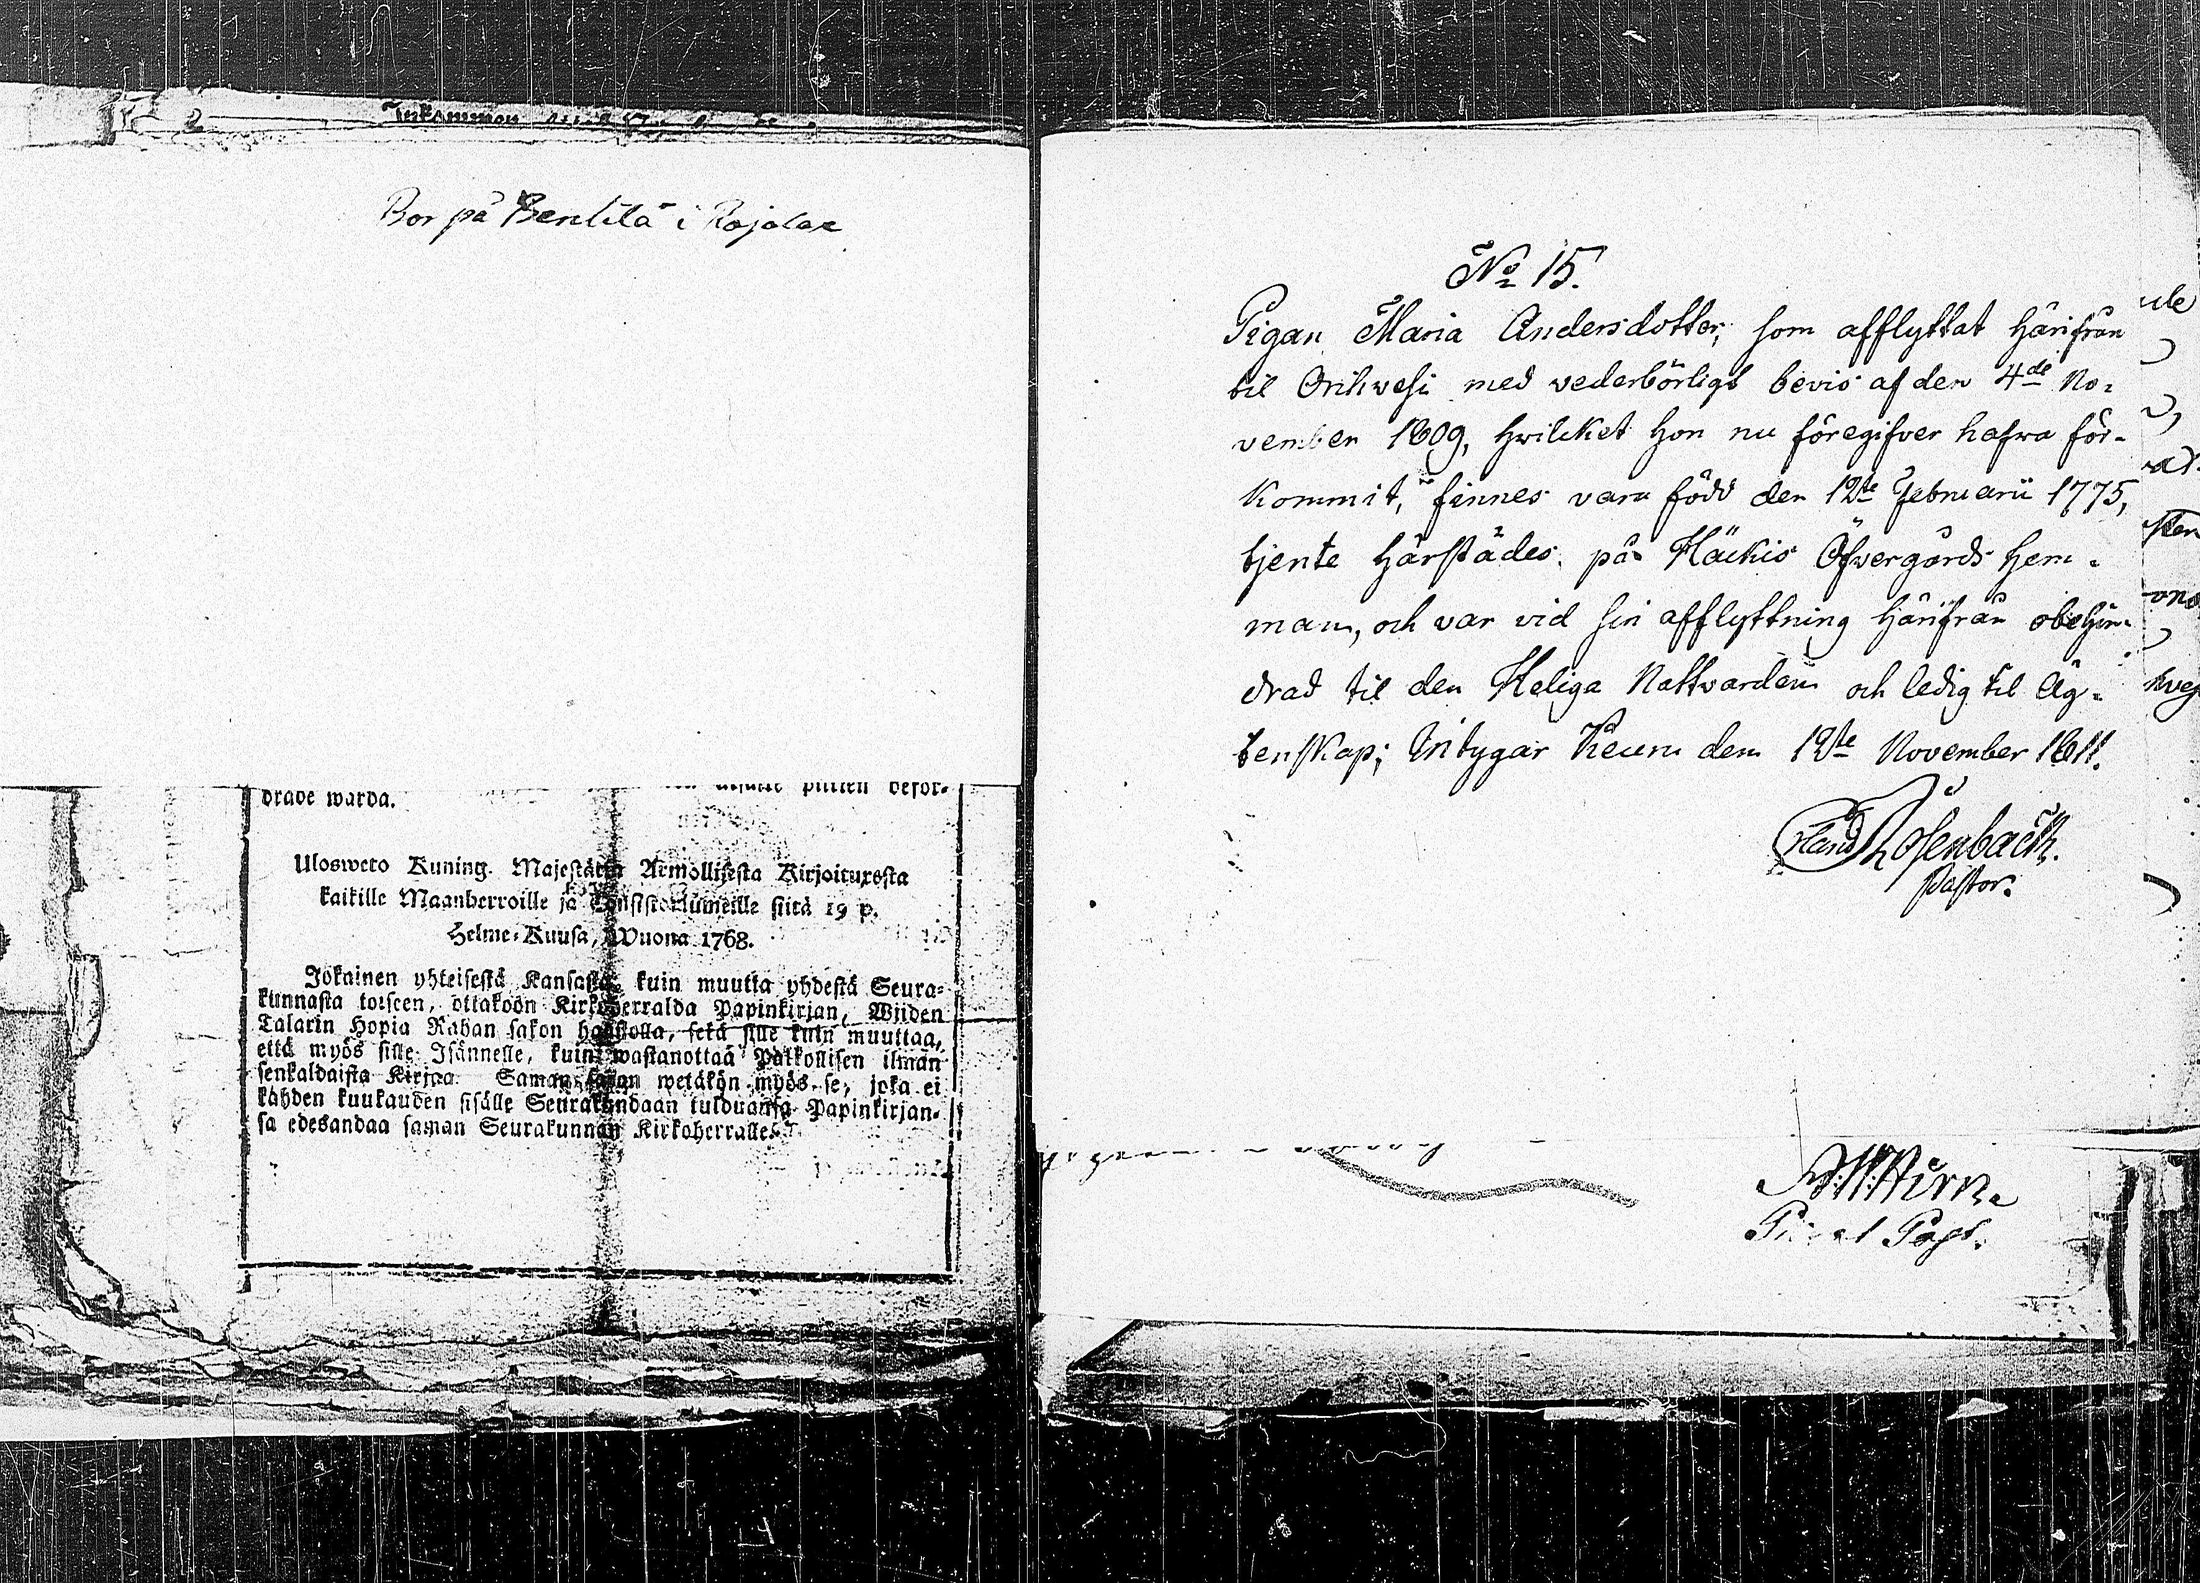 Inkommen
Bor på Bentilä i Rajalax
drade warda. pliten befor-
Ulosweto Kuning. Majestätin Armollisesta Kirjoituxesta
kaikille Maanherroille ja Consistoriumeille siitä 19 p.
Helme-Kuusa, Wuona 1768.
Jokainen yhteisestä Kansasta, kuin muutta yhdestä Seura-
kunnasta toiseen, ottakoon Kirkoherralda Papinkirjan, Wiiden
Talarin Hopia Rahan sakon haastolla, sekä sille kuin muuttaa,
että myös sille Isännelle, kuin wastanottaa Palkollisen ilman
senkaldaista Kirjaa. Saman sakon wetäkön myös se, joka ei
kahden kuukauden sisälle Seurakundaan tulduansa Papinkirjan-
sa edesandaa saman Seurakunnan Kirkoherralle.
No 15.
Pigan Maria Andersdotter, som afflyttat härifrån
til Orihwesi med vederbörligt bevis af den 4de No-
vember 1809, hwilcket hon nu föregifver hafwa för-
kommit, finnes vara född den 12te Februarii 1775,
tjente härstädes på Häckis Öfvergårds hem-
man, och var vid sin afflyttning härifrån obehin-
drad til den Heliga Nattvarden och ledig til Äg-
tenskap; Intygar Keuru dem 12te November 1811.
Erland Rosenback.
Pastor.
Past.